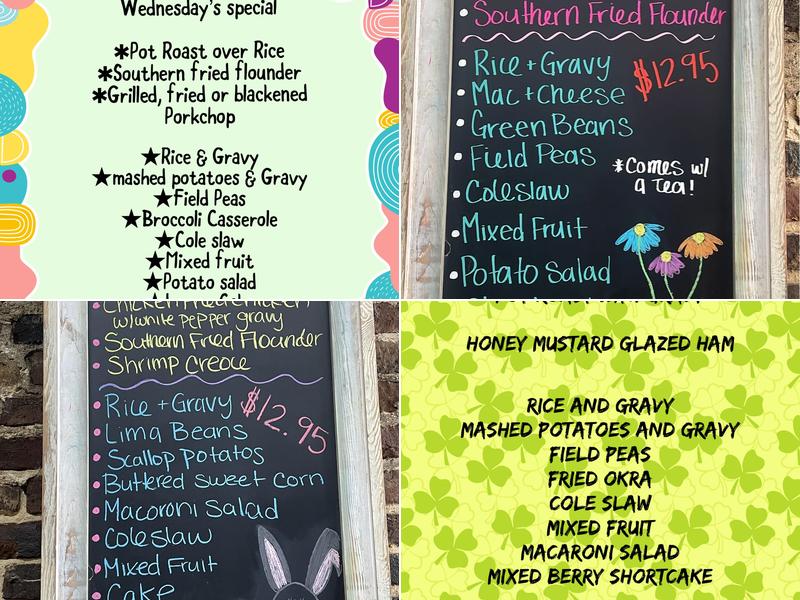 Wednesday's special
*Pot Roast over Rice
*Southern fried flounder
*Grilled, fried or blackened
Porkchop
★Rice & Gravy
★mashed potatoes & Gravy
★Field Peas
★Broccoli Casserole
★Cole slaw
★Mixed fruit
★Potato salad
• Southern Fried Flounder
• Rice + Gravy
$12.95
• Mac + Cheese
• Green Beans
• Field Peas
*Comes w/
a Tea!
• Coleslaw
• Mixed Fruit
• Potato Salad
Chicken Fried Chicken
w/white pepper gravy
• Southern Fried Flounder
• Shrimp Creole
• Rice + Gravy
$12.95
• Lima Beans
• Scallop Potatos
• Buttered Sweet Corn
• Macaroni Salad
• Coleslaw
• Mixed Fruit
• Cake
HONEY MUSTARD GLAZED HAM
RICE AND GRAVY
MASHED POTATOES AND GRAVY
FIELD PEAS
FRIED OKRA
COLE SLAW
MIXED FRUIT
MACARONI SALAD
MIXED BERRY SHORTCAKE